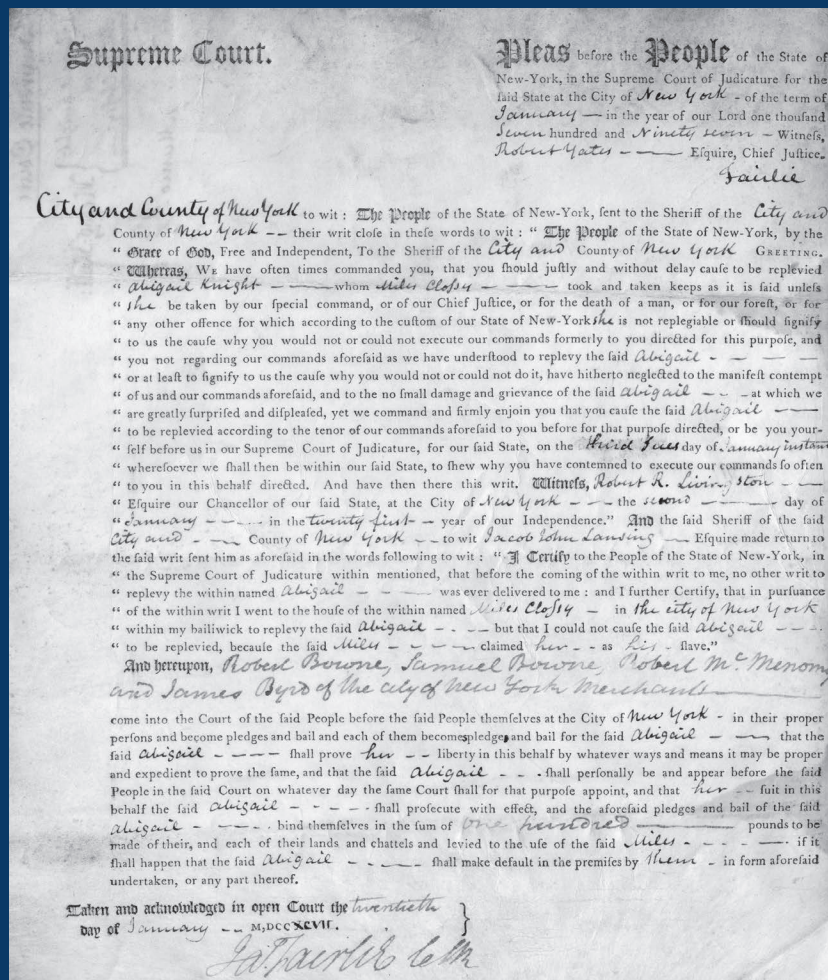 Supreme Court.
Pleas before the People of the State of
New-York, in the Supreme Court of Judicature for the
ſaid State at the City of New York - of the term of
January — in the year of our Lord one thouſand
Seven hundred and Ninety seven - Witneſs,
Robert Yates - - — Eſquire, Chief Juſtice.
Fairlie
City and County of New York to wit : The People of the State of New-York, ſent to the Sheriff of the City and
County of New York - - their writ cloſe in theſe words to wit : " The People of the State of New-York, by the
" Grace of God, Free and Independent, To the Sheriff of the City and County of New York GREETING.
" Whereas, WE have often times commanded you, that you ſhould juſtly and without delay cauſe to be replevied
" Abigail Knight - — whom Miles Cloſsy - — took and taken keeps as it is ſaid unleſs
" She be taken by our ſpecial command, or of our Chief Juſtice, or for the death of a man, or for our foreſt, or for
" any other offence for which according to the cuſtom of our State of New-York she is not replegiable or ſhould ſignify
" to us the cauſe why you would not or could not execute our commands formerly to you directed for this purpoſe, and
" you not regarding our commands aforeſaid as we have underſtood to replevy the ſaid Abigail - - — —
" or at leaſt to ſignify to us the cauſe why you would not or could not do it, have hitherto neglected to the manifeſt contempt
" of us and our commands aforeſaid, and to the no ſmall damage and grievance of the ſaid abigail - - - at which we
" are greatly ſurpriſed and diſpleaſed, yet we command and firmly enjoin you that you cauſe the ſaid Abigail - —
" to be replevied according to the tenor of our commands aforeſaid to you before for that purpoſe directed, or be you your-
" ſelf before us in our Supreme Court of Judicature, for our ſaid State, on the third Tues day of January instant
" whereſoever we ſhall then be within our ſaid State, to ſhew why you have contemned to execute our commands ſo often
" to you in this behalf directed. And have then there this writ. Witneſs, Robert R. Livingston - —
" Eſquire our Chancellor of our ſaid State, at the City of New York - — the second — day of
" January - - - - in the twenty first - year of our Independence." And the ſaid Sheriff of the ſaid
City and - - — County of New York - - to wit Jacob John Lansing — Eſquire made return to
the ſaid writ ſent him as aforeſaid in the words following to wit : " I Certify to the People of the State of New-York, in
" the Supreme Court of Judicature within mentioned, that before the coming of the within writ to me, no other writ to
" replevy the within named Abigail - - — was ever delivered to me : and I further Certify, that in purſuance
" of the within writ I went to the houſe of the within named Miles Cloſsy - in the city of New York
" within my bailiwick to replevy the ſaid Abigail - - - - but that I could not cauſe the ſaid Abigail - - —
" to be replevied, becauſe the ſaid Miles - - — claimed her - - as his - ſlave."
And hereupon, Robert Bowne, Samuel Bowne, Robert McMenomy
and James Byrd of the city of New York Merchants
come into the Court of the ſaid People before the ſaid People themſelves at the City of New York - in their proper
perſons and become pledges and bail and each of them becomes pledge, and bail for the ſaid Abigail - - — that the
ſaid abigail - - — ſhall prove her - - liberty in this behalf by whatever ways and means it may be proper
and expedient to prove the ſame, and that the ſaid Abigail - - - ſhall perſonally be and appear before the ſaid
People in the ſaid Court on whatever day the ſame Court ſhall for that purpoſe appoint, and that her - - ſuit in this
behalf the ſaid abigail - - - - ſhall proſecute with effect, and the aforeſaid pledges and bail of the ſaid
abigail - - - - bind themſelves in the ſum of one hundred — pounds to be
made of their, and each of their lands and chattels and levied to the uſe of the ſaid Miles - - - - if it
ſhall happen that the ſaid Abigail - - — ſhall make default in the premiſes by them - in form aforeſaid
undertaken, or any part thereof.
Taken and acknowledged in open Court the twentieth
day of January - - M,DCCXCVII. }
Jas. Fairlie Clk